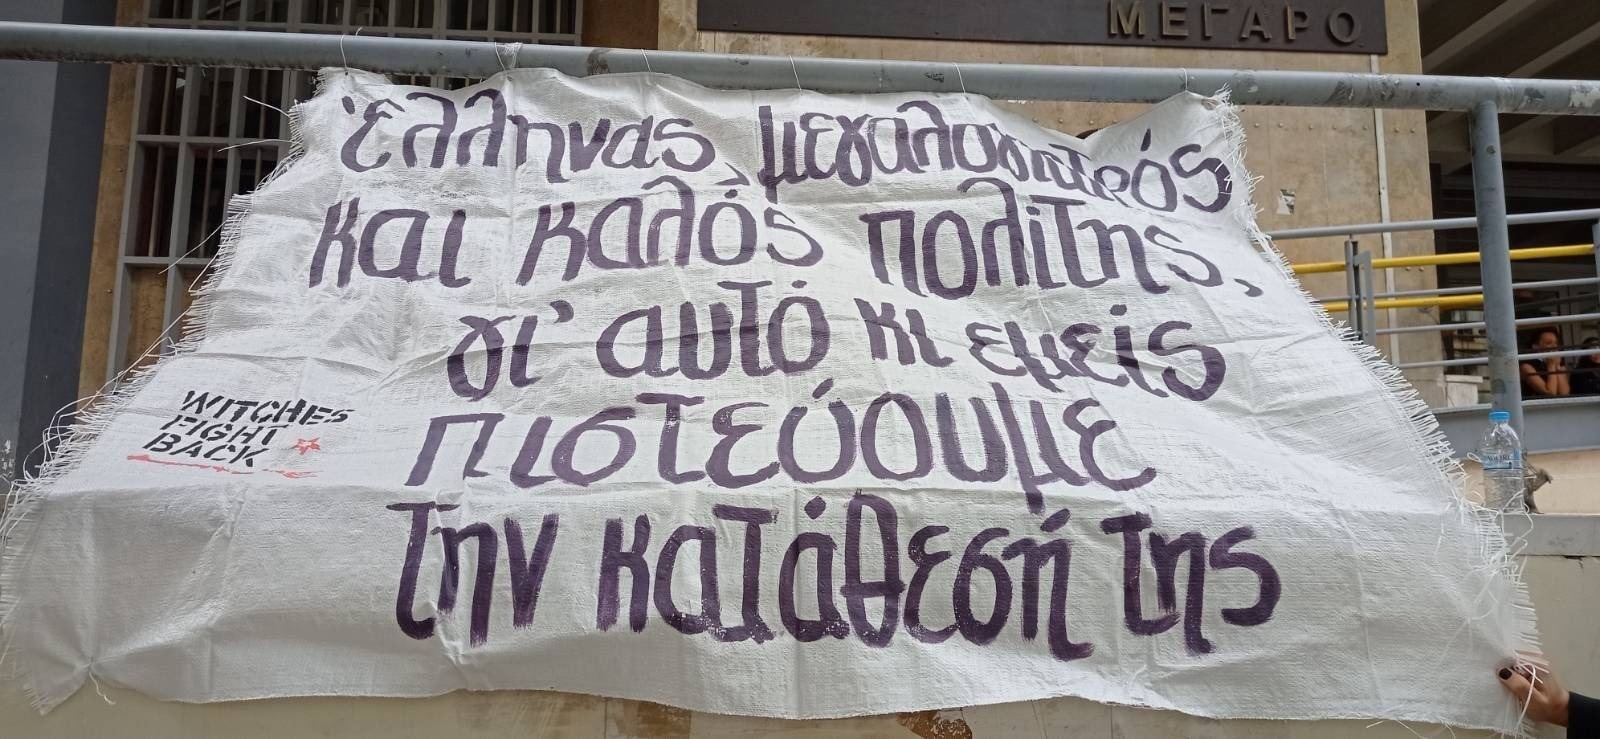 ΜΕΓΑΡΟ
Έλληνας, μεγαλογιατρός
και καλός πολίτης,
γι' αυτό κι εμείς
πιστεύουμε
την κατάθεσή της
WITCHES
FIGHT
BACK